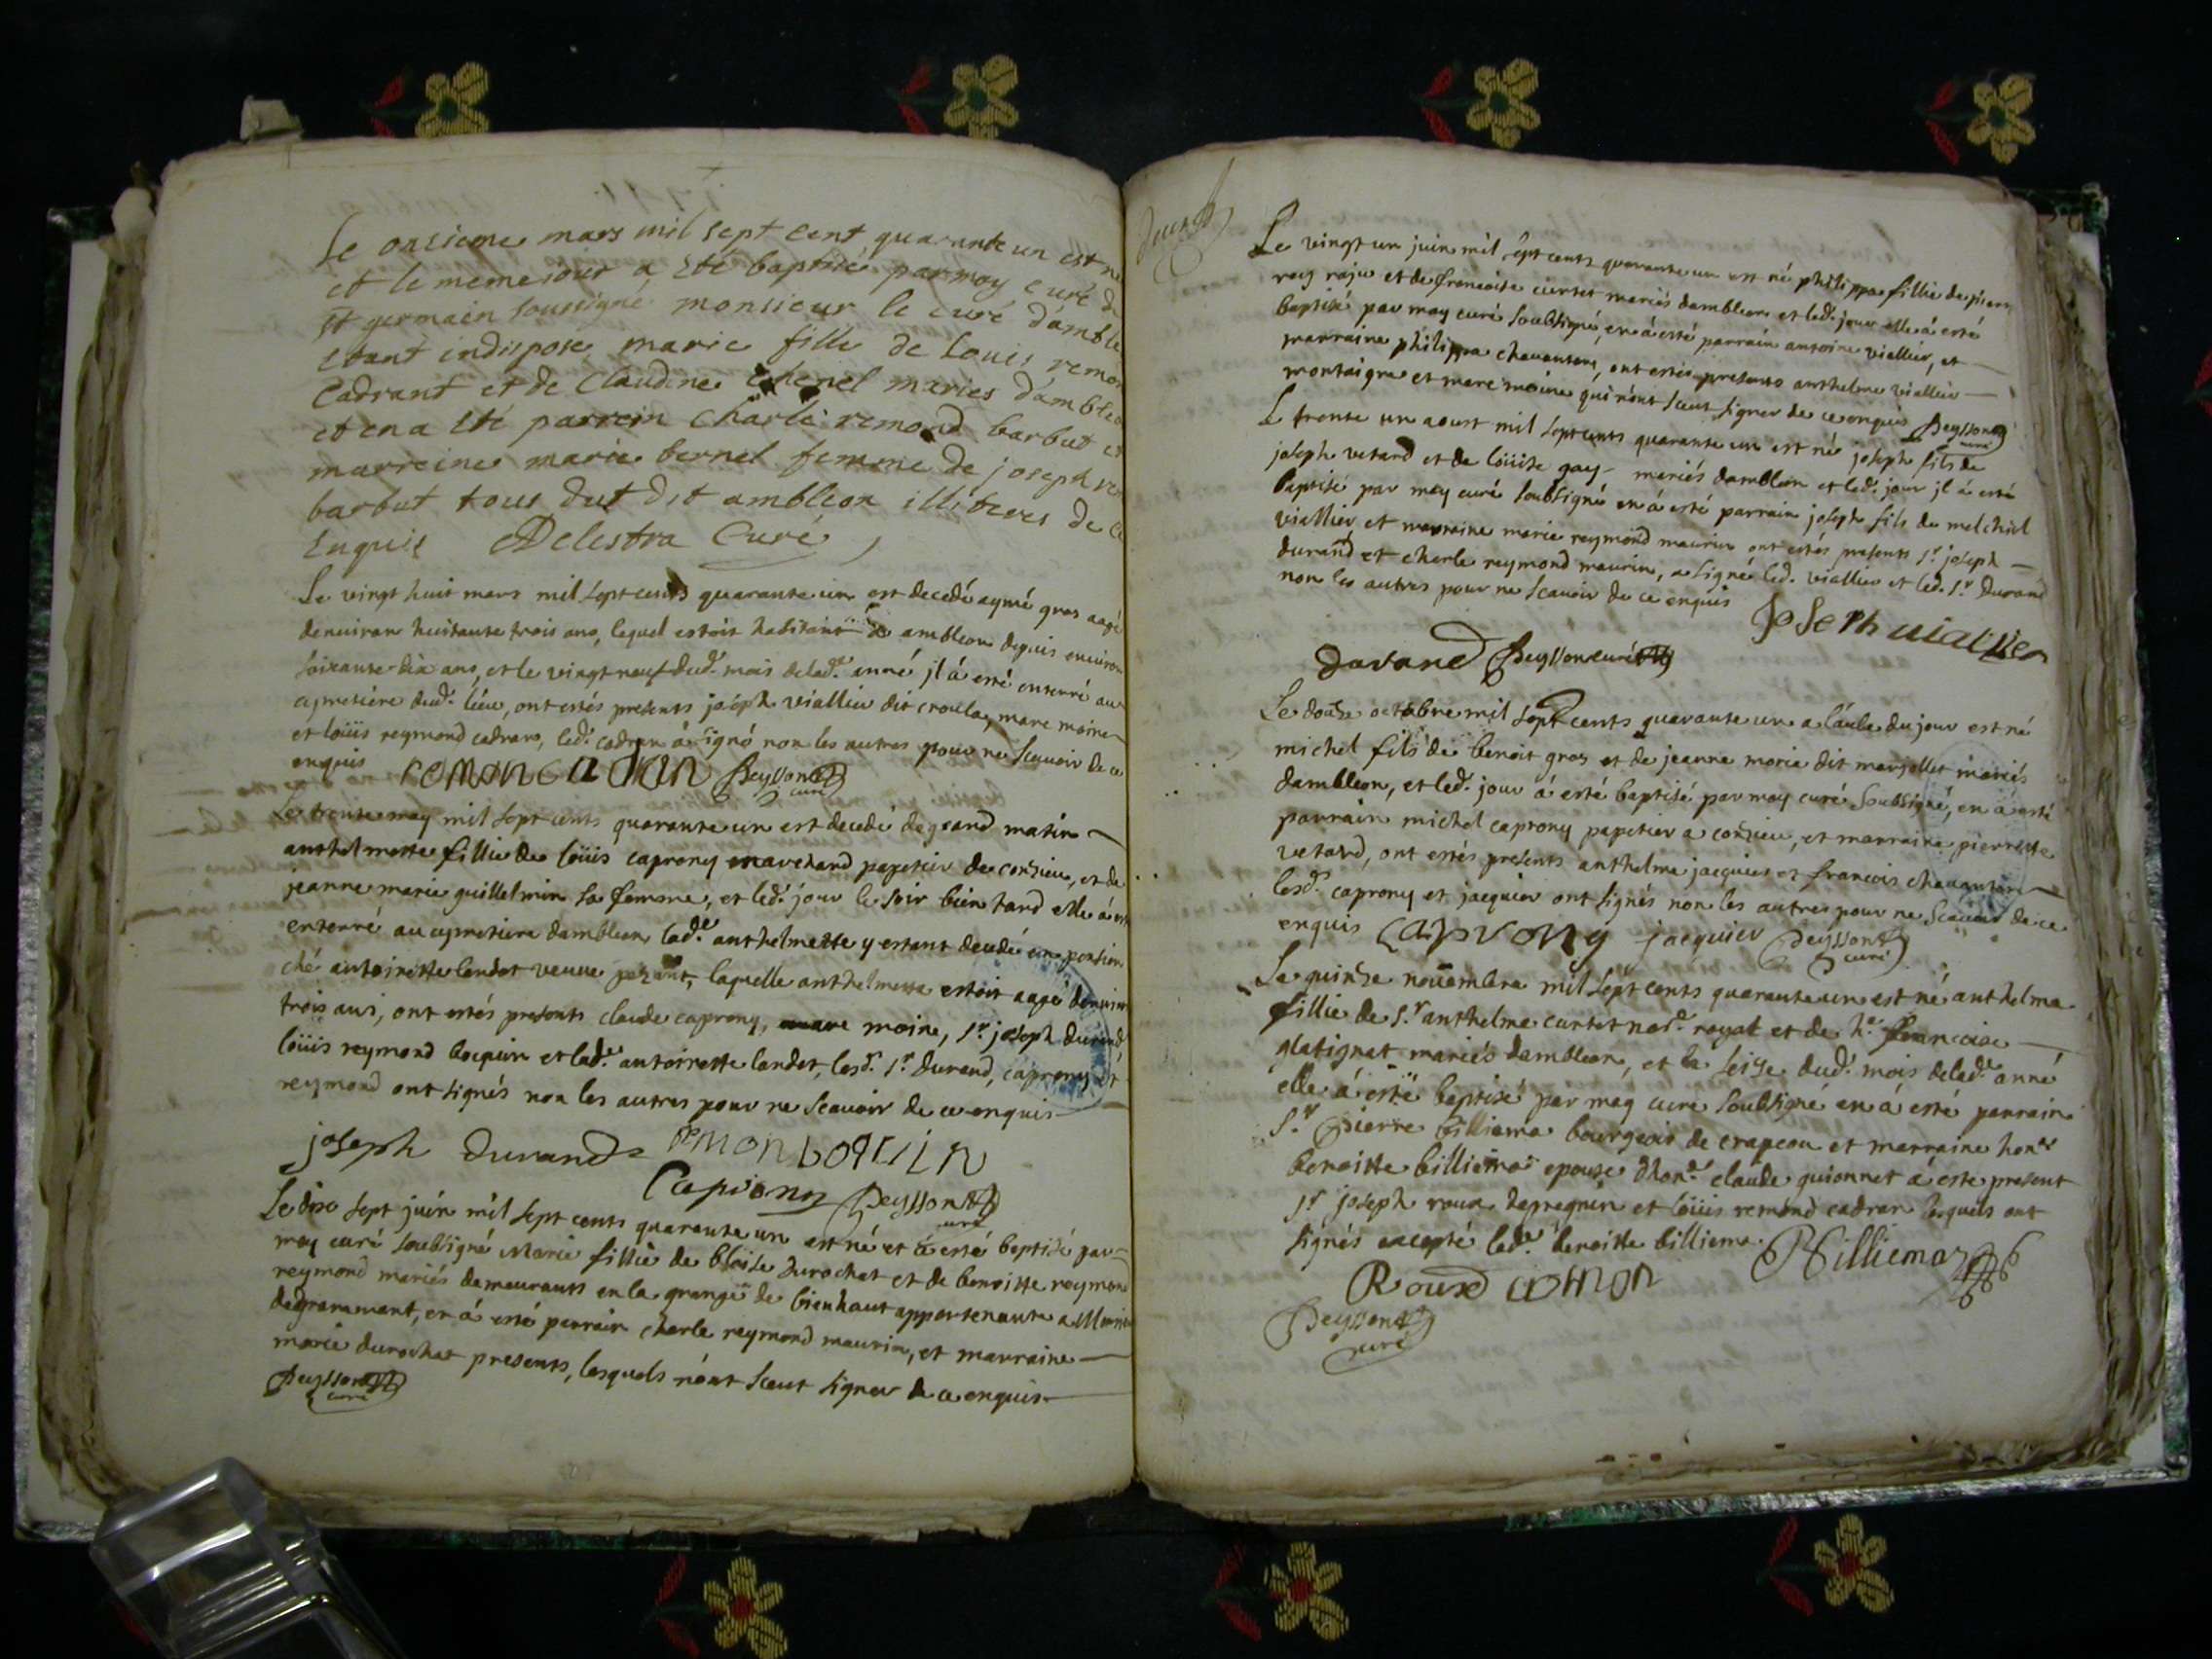 Le onsieme mars mil sept cent quarante un est né
et le meme jour a été baptisée par moy curé de
st germain soussigné monsieur le curé d'amble
etant indispose marie fille de Louis remon
Cadrant et de Claudine chenel maries d'amble
et en a été parrein Charle remond barbut et
marreine marie bernel femme de joseph re
barbut tous dut dit ambleon illiteres de ce
Enquis Delestra Curé
Le vingt huit mars mil sept cents quarante un est decedé aymé gros aagé
denuiron huitante trois ans, lequel estoit habitant ambleon depuis enuiron
soixante dix ans, et le vingt neuf dud. mois de lad.e anné jl á esté enterré au
cymetiére dud. liéu, ont estés presents joséph viallieu dit croula, marc moine
et loüis reymond cadran, led. cadran á signé non les autres pour ne scauoir de ce
enquis remon cadran Peysson curé
Le trente may mil sept cents quarante un est decedé de grand matin
anthelmette fillie de loüis caprony marchand papetier de consieu, et de
jeanne marie guillelmin sa femme, et led. jour le soir bien tard elle á
enterré au cymetiere dambleon lad.e anthelmette y estant decedé en pension
ché antoinette landet veuue, laquelle anthelmette estoit aagé denuiron
trois ans, ont estés presents claude caprony, marc moine, s.r joseph durand
loüis reymond bocquin et lad.e antoinette landet, lesd. s.r durand, caprony et
reymond ont signés non les autres pour ne scauoir de ce enquis
joseph durand remon boquin
Caprony Peysson curé
Le dix sept juin mil sept cents quarante un est né et á esté baptisé par
moy curé soubsigné Marie fillie de blaise durochat et de benoitte reymond
reymond mariés demeurants en la grange de bienhaut appartenante a
degrammont, en á esté parrain charle reymond maurin, et marraine
marie durochat presents, lesquels n'ont sceut signer de ce enquis
Peysson curé
Durand
Le vingt un juin mil sept cents quarante un est né philippa fillie de pierre
roy et de francoise curtet mariés dambleon et led. jour elle á esté
baptisé par moy curé soubsigné, en á esté parrain antoine viallier, et
marraine philippa chauanton, ont estés presents anthelme viallier
montaigne et marc moine qui nónt sceut signer de ce enquis Peysson curé
Le trente un aoust mil sept cents quarante un est né joseph fils de
joseph vetard et de loüise gay mariés dambleon et led. jour jl á esté
baptisé par moy curé soubsigné en á esté parrain joseph fils de melchiel
viallier et marraine marie reymond maurin ont estés presents s.r joseph
durand et charle reymond maurin, a signé led. viallier et led. s.r durand
non les autres pour ne scauoir de ce enquis
Joseph uialier
Durand Peysson curé
Le douse octobre mil sept cents quarante un a láube du jour est né
michel fils de benoit gros et de jeanne marie dit marjollet mariés
dambleon, et led. jour á esté baptisé par moy curé soubsigné, en á esté
parrain michel caprony papetier a consieu, et marraine pierrette
vetard, ont estés presents anthelme jacquier et francois chauanton
lesd. caprony et jacquier ont signés non les autres pour ne scauoir de ce
enquis Caprony jacquier Peysson curé
Le quinse nouembre mil sept cents quarante un est né anthelma
fillie de s.r anthelme curtet no.e royal et de h.e francoise
glatignat mariés dambleon, et la seise dud. mois de lad.e anné
elle á esté baptisé par moy curé soubsigné en á esté parrain
s.r pierre billiema bourgeois de crapeou et marraine hon.e
benoitte billiema epouse d'hon.e claude guionnet á este present
s.r joseph roux depregnin et loüis remond cadran lesquels ont
signés excepté lad.e benoitte billiema.
P Billiemaz
Roux remon
Peysson curé